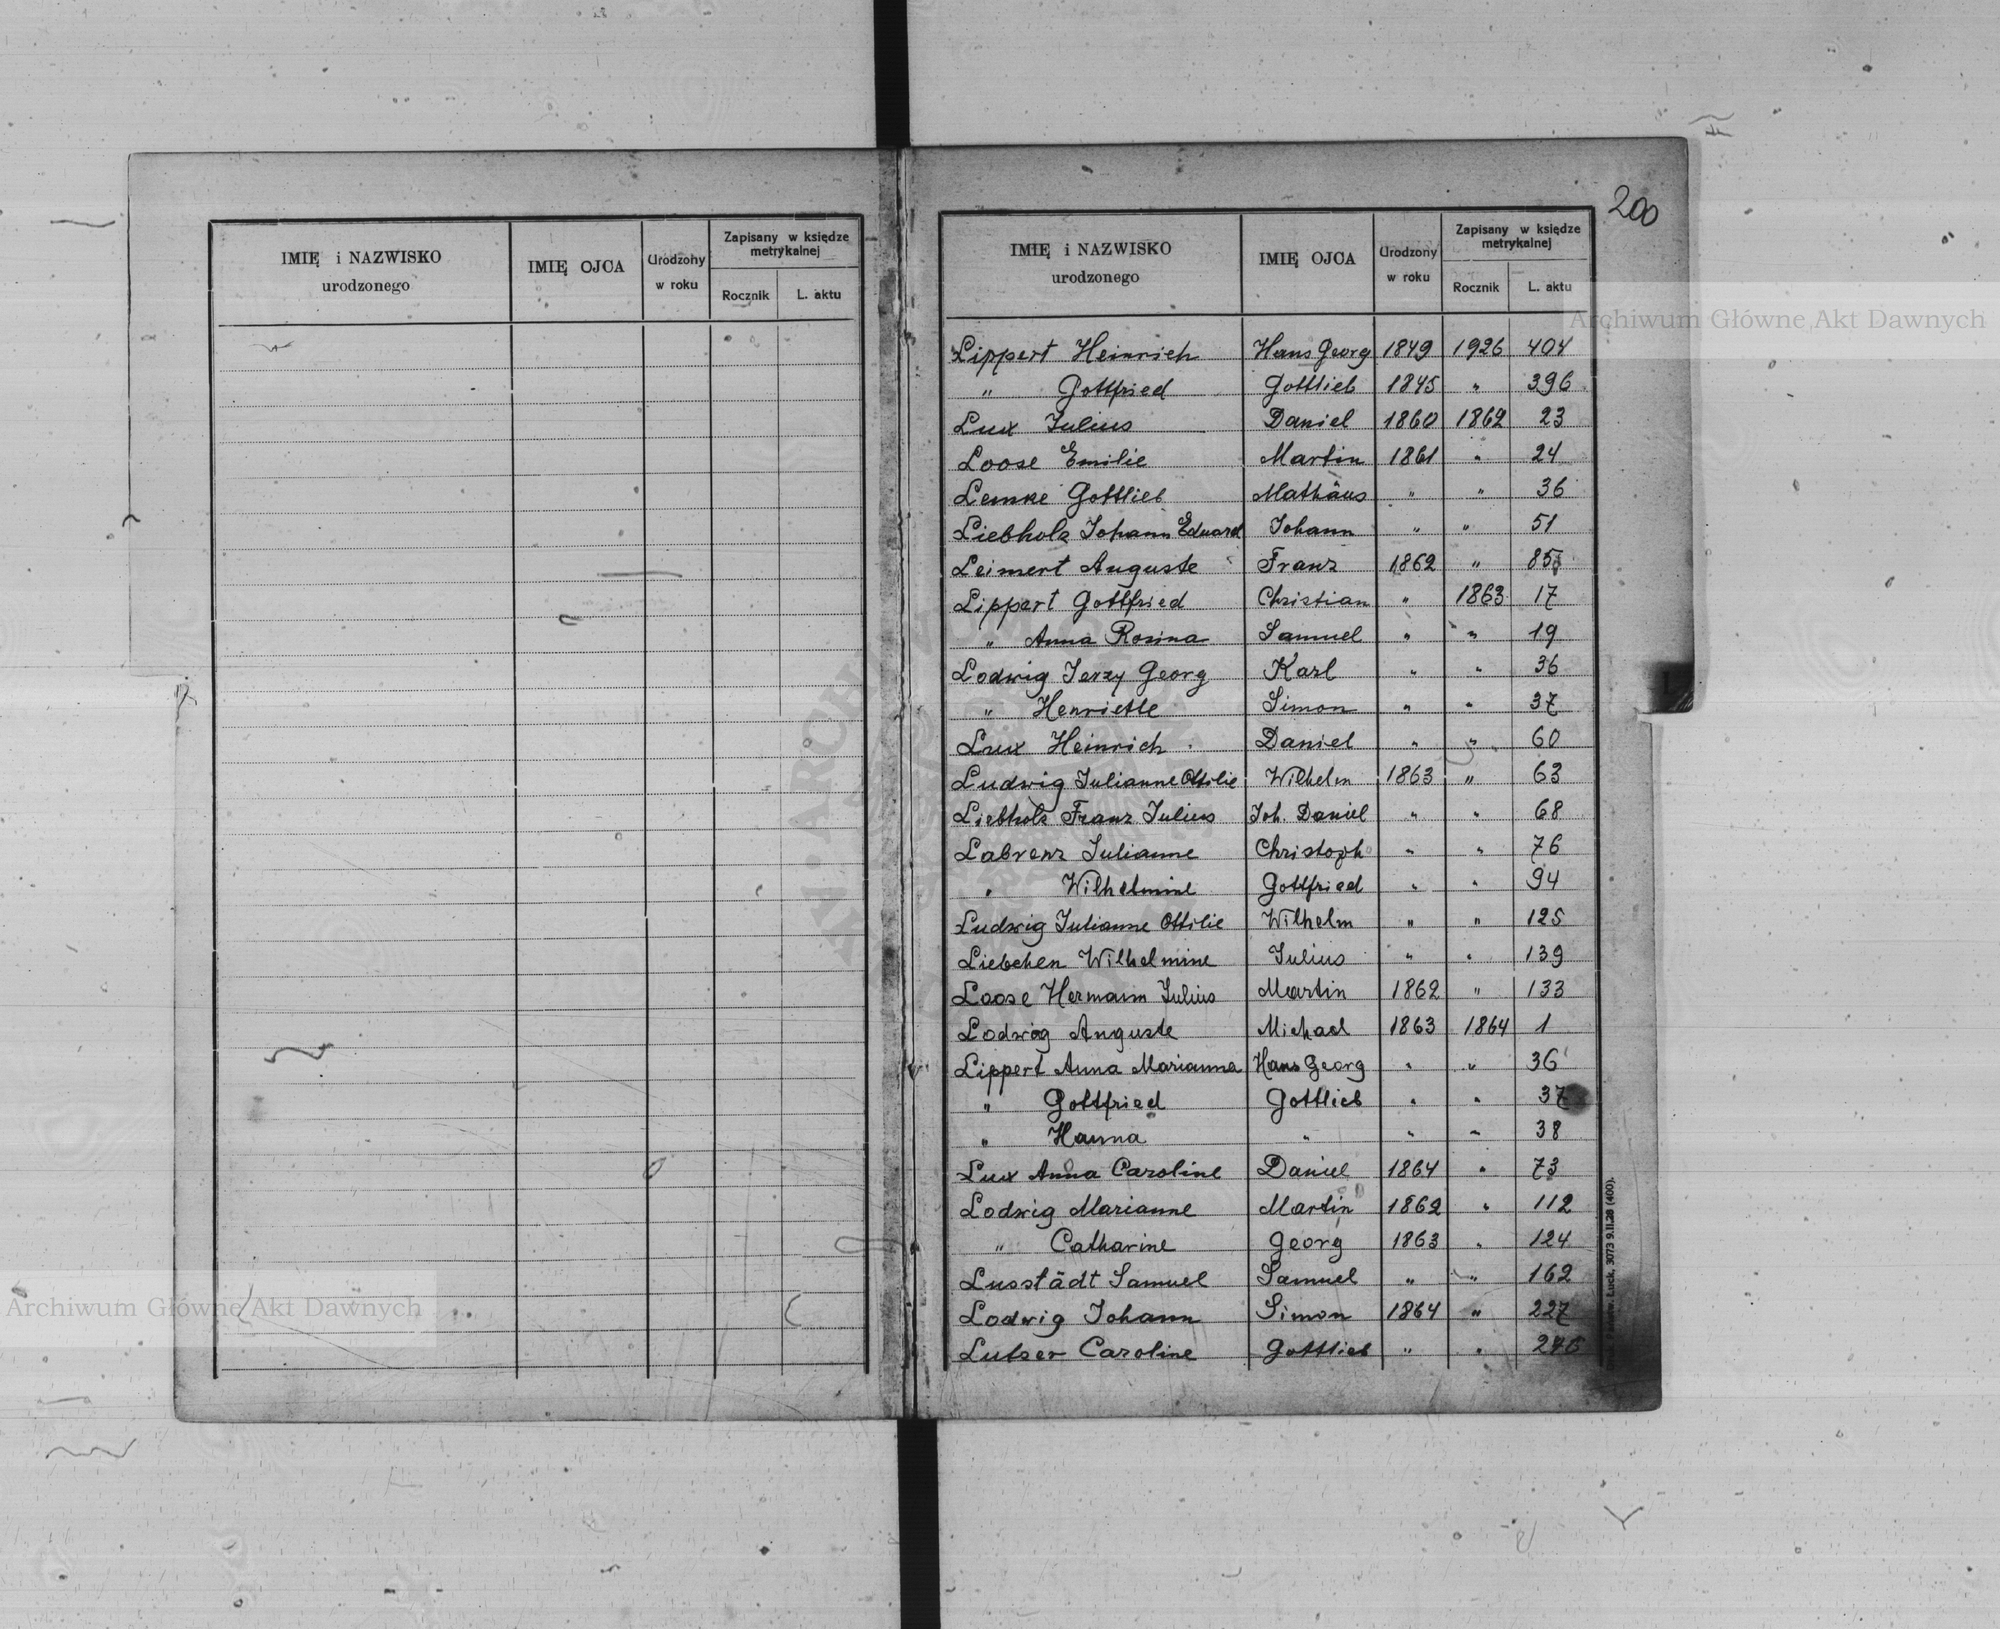 200
IMIĘ i NAZWISKO urodzonego IMIĘ OJCA Urodzony w roku Zapisany w księdze metrykalnej Rocznik L. aktu
IMIĘ i NAZWISKO urodzonego IMIĘ OJCA Urodzony w roku Zapisany w księdze metrykalnej Rocznik L. aktu
Archiwum Główne Akt Dawnych
Lippert Heinrich Hans Georg 1849 1926 404
" Gottfried Gottlieb 1845 " 396
Lux Julius Daniel 1860 1862 23
Loose Emilie Martin 1861 " 24
Lemke Gottlieb Mathäus " " 36
Liebholz Johann Eduard Johann " " 51
Leimert Auguste Franz 1862 " 85
Lippert Gottfried Christian " 1863 17
" Anna Rosina Samuel " " 19
Lodwig Jerzy Georg Karl " " 36
" Henriette Simon " " 37
Lux Heinrich Daniel " " 60
Ludwig Julianne Ottilie Wilhelm 1863 " 63
Liebholz Franz Julius Joh. Daniel " " 68
Labrenz Julianne Christoph " " 76
" Wilhelmine Gottfried " " 94
Ludwig Julianne Ottilie Wilhelm " " 125
Liebchen Wilhelmine Julius " " 139
Loose Hermann Julius Martin 1862 " 133
Lodwig Auguste Michael 1863 1864 1
Lippert Anna Marianna Hans Georg " " 36
" Gottfried Gottlieb " " 37
" Hanna " " " 38
Lux Anna Caroline Daniel 1864 " 73
Lodwig Marianne Martin 1862 " 112
" Catharine Georg 1863 " 124
Lusstädt Samuel Samuel " " 162
Lodwig Johann Simon 1864 " 227
Lutzer Caroline Gottlieb " " 276
Łuck. 3073 9.II.28 (400).
Archiwum Główne Akt Dawnych